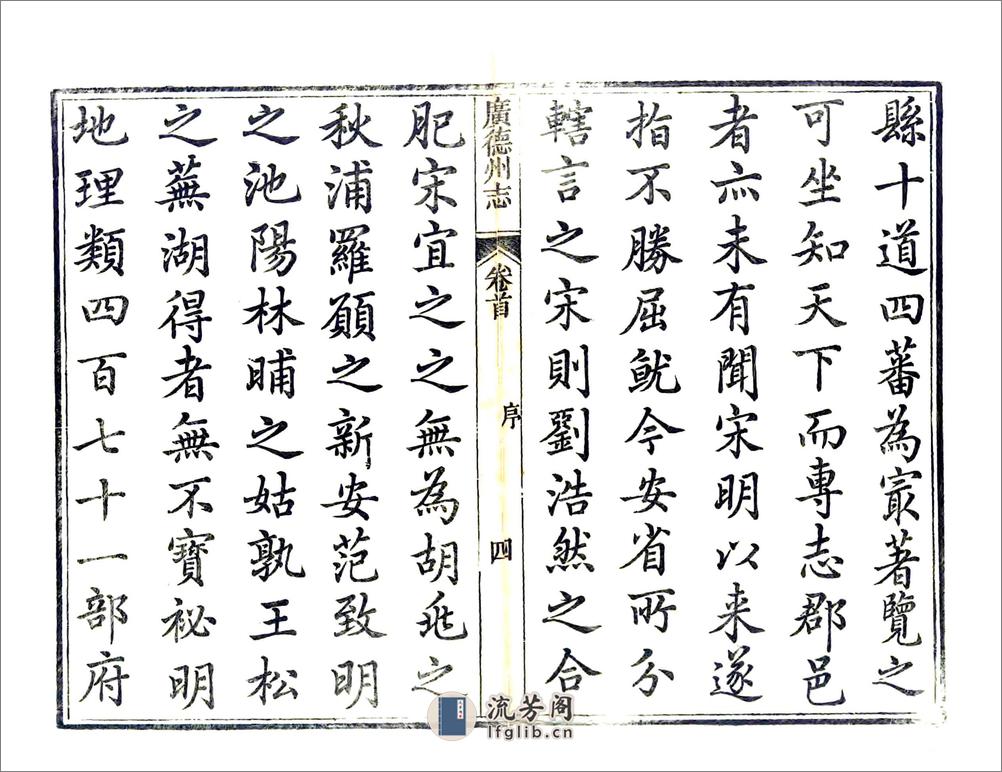 縣十道四蕃為㝡著覽之
可坐知天下而專志郡邑
者亦未有聞宋明以来遂
指不勝屈就今安省所分
轄言之宋則劉浩然之合
廣德州志
卷首
序
四
肥宋宜之之無為胡兆之
秋浦羅願之新安范致明
之池陽林晡之姑孰王松
之蕪湖得者無不寶祕明
地理類四百七十一部府
流芳阁
lfglib.cn